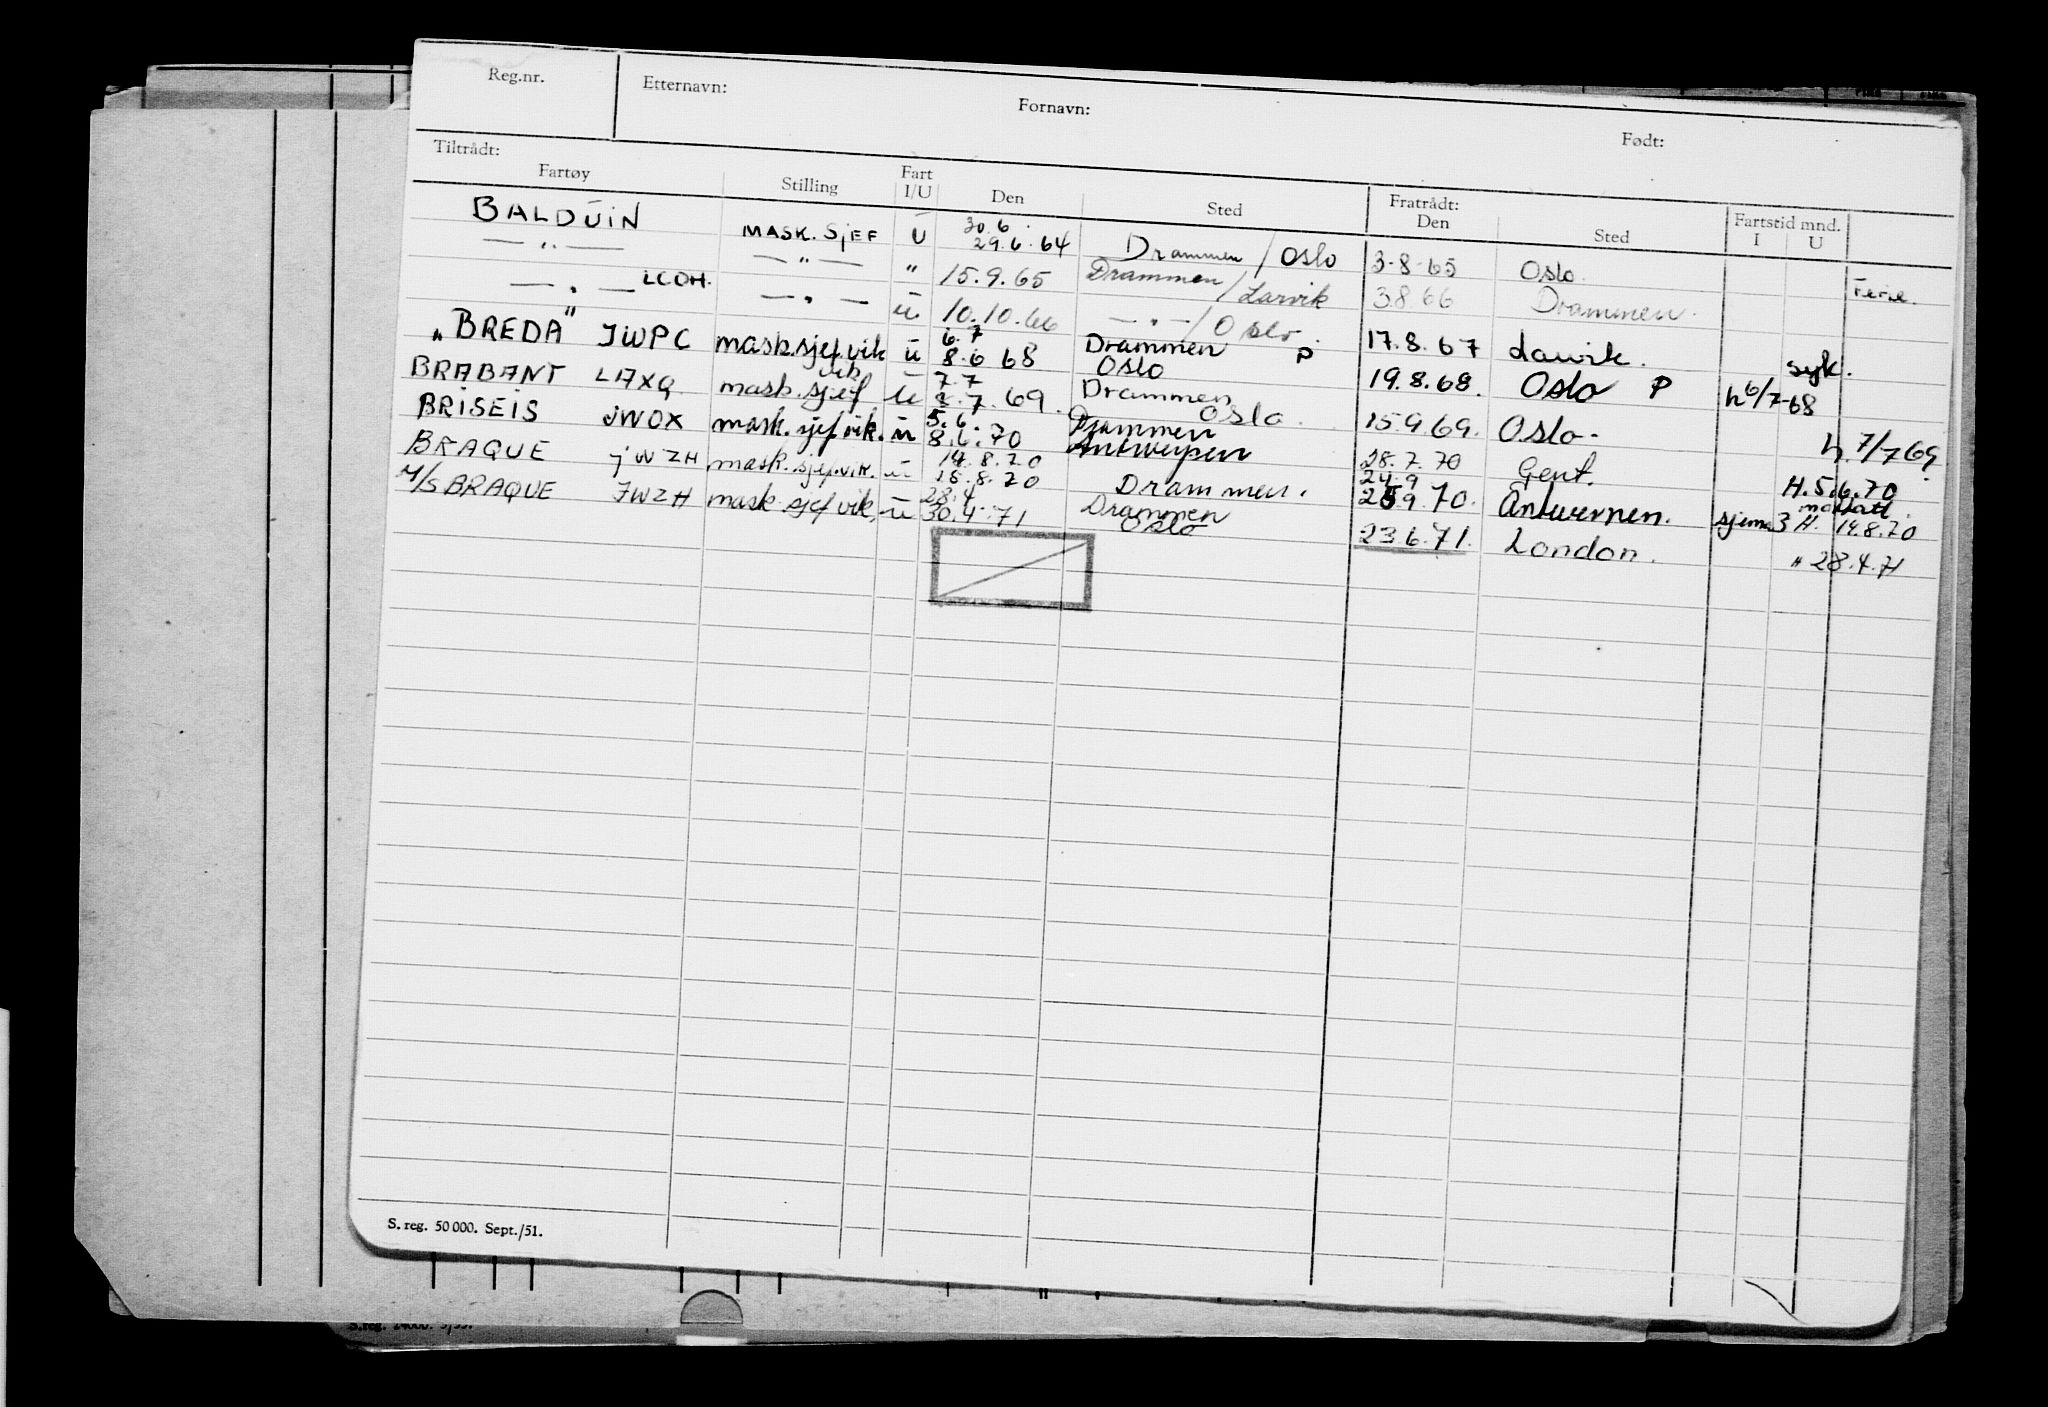 Reg.nr. Etternavn: Fornavn: Født:
Tiltrådt: Fratrådt:
Fartøy Stilling Fart I/U Den Sted Den Sted Fartstid mnd. I U
BALDUIN MASK. SJEF U 30.6. 29.6.64 Drammen / Oslo 3-8-65 Oslo.
— " — — " — " 15.9.65 Drammen / Larvik 3.8.66 Drammen. Ferie.
— " — LCOH. — " — U 10.10.66 — " — / Oslo. 17.8.67 Larvik. syk.
"BREDA" JWPC mask.sjef.vik U 6.7 8.6 68 Drammen Oslo P 19.8.68. Oslo P h 6/7-68
BRABANT LAXQ mask.sjef vik U 7.7 .7.69. Drammen Oslo. 15.9.69. Oslo. h. 7/7 69
BRISEIS JWOX mask.sjef.vik. U 5.6. 8.6.70 Drammen Antwerpen 28.7.70 Gent. H. 5.6.70
BRAQUE jWZH mask.sjef.vik. U 14.8.70 18.8.70 Drammen. 24.9 25.9.70. Antwerpen. H. 14.8.70
M/S BRAQUE JWZH mask sjef vik. U 28.4 30.4.71 Drammen Oslo 23.6.71. London. " 28.4.71
S. reg. 50 000. Sept./51.